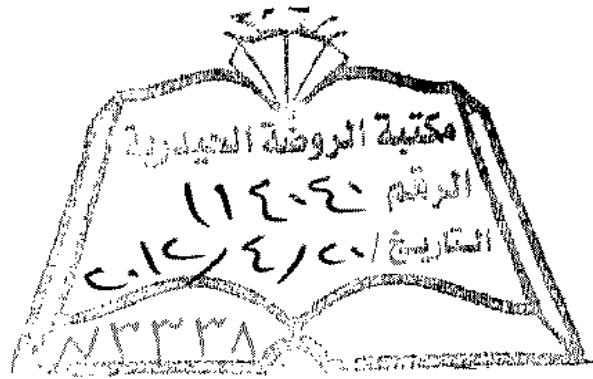 مكتبة الروضة الحيدرية
الرقم ١١٤٠٤٠
التاريخ / ٢٠١٢/٤/٢٠